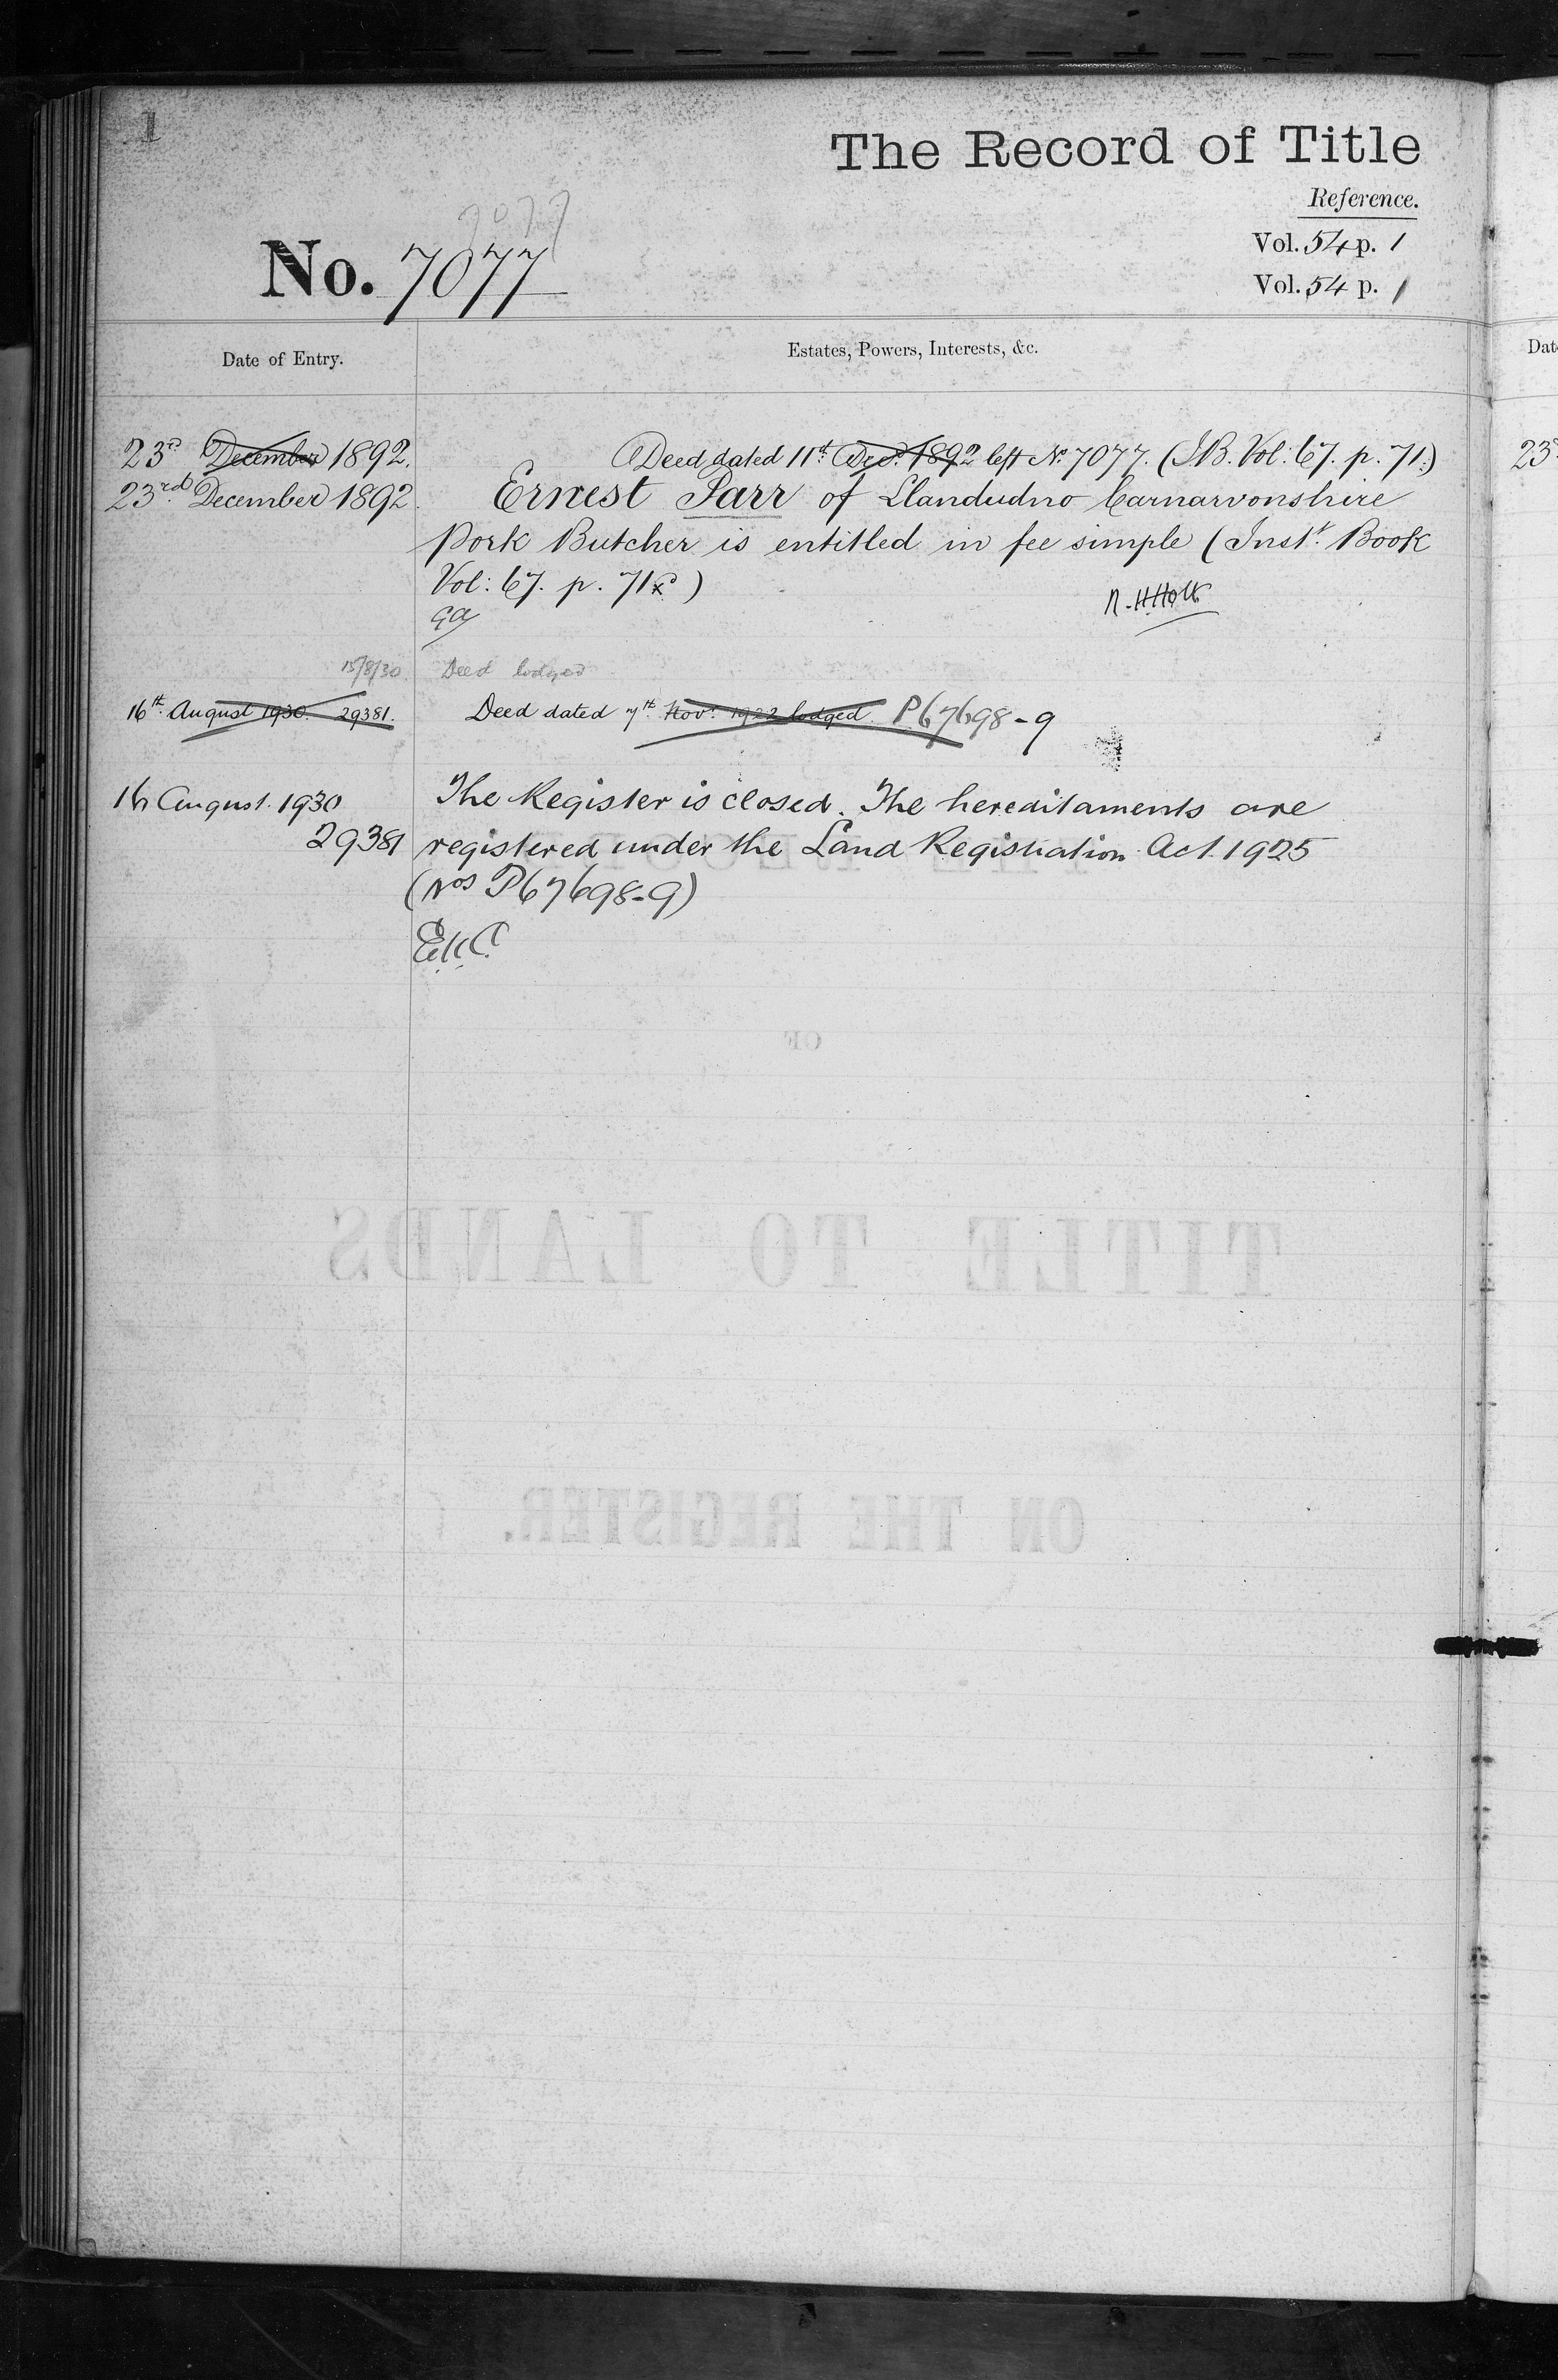 1
The Record of Title
Reference.
7077
No. 7077
Vol. 54 p. 1
Vol. 54 p. 1
Date of Entry.
Estates, Powers, Interests, &c.
Dat
23d December 1892.
Deed dated 11th Decr. 1892 left No. 7077. (I.B. Vol: 67. p. 71.)
23
23rd December 1892.
Ernest Parr of Llandudno Carnarvonshire
Pork Butcher is entitled in fee simple (Inst. Book
Vol: 67. p. 71 )
15/8/30
Deed lodged
16th August 1930. 29381.
Deed dated 7th Novr. 1922 lodged. P67698-9
16 August 1930
The Register is closed. The hereditaments are
29381
registered under the Land Registration Act 1925
(Nos P67698-9)
OF
TITLE TO LANDS
ON THE REGISTER.